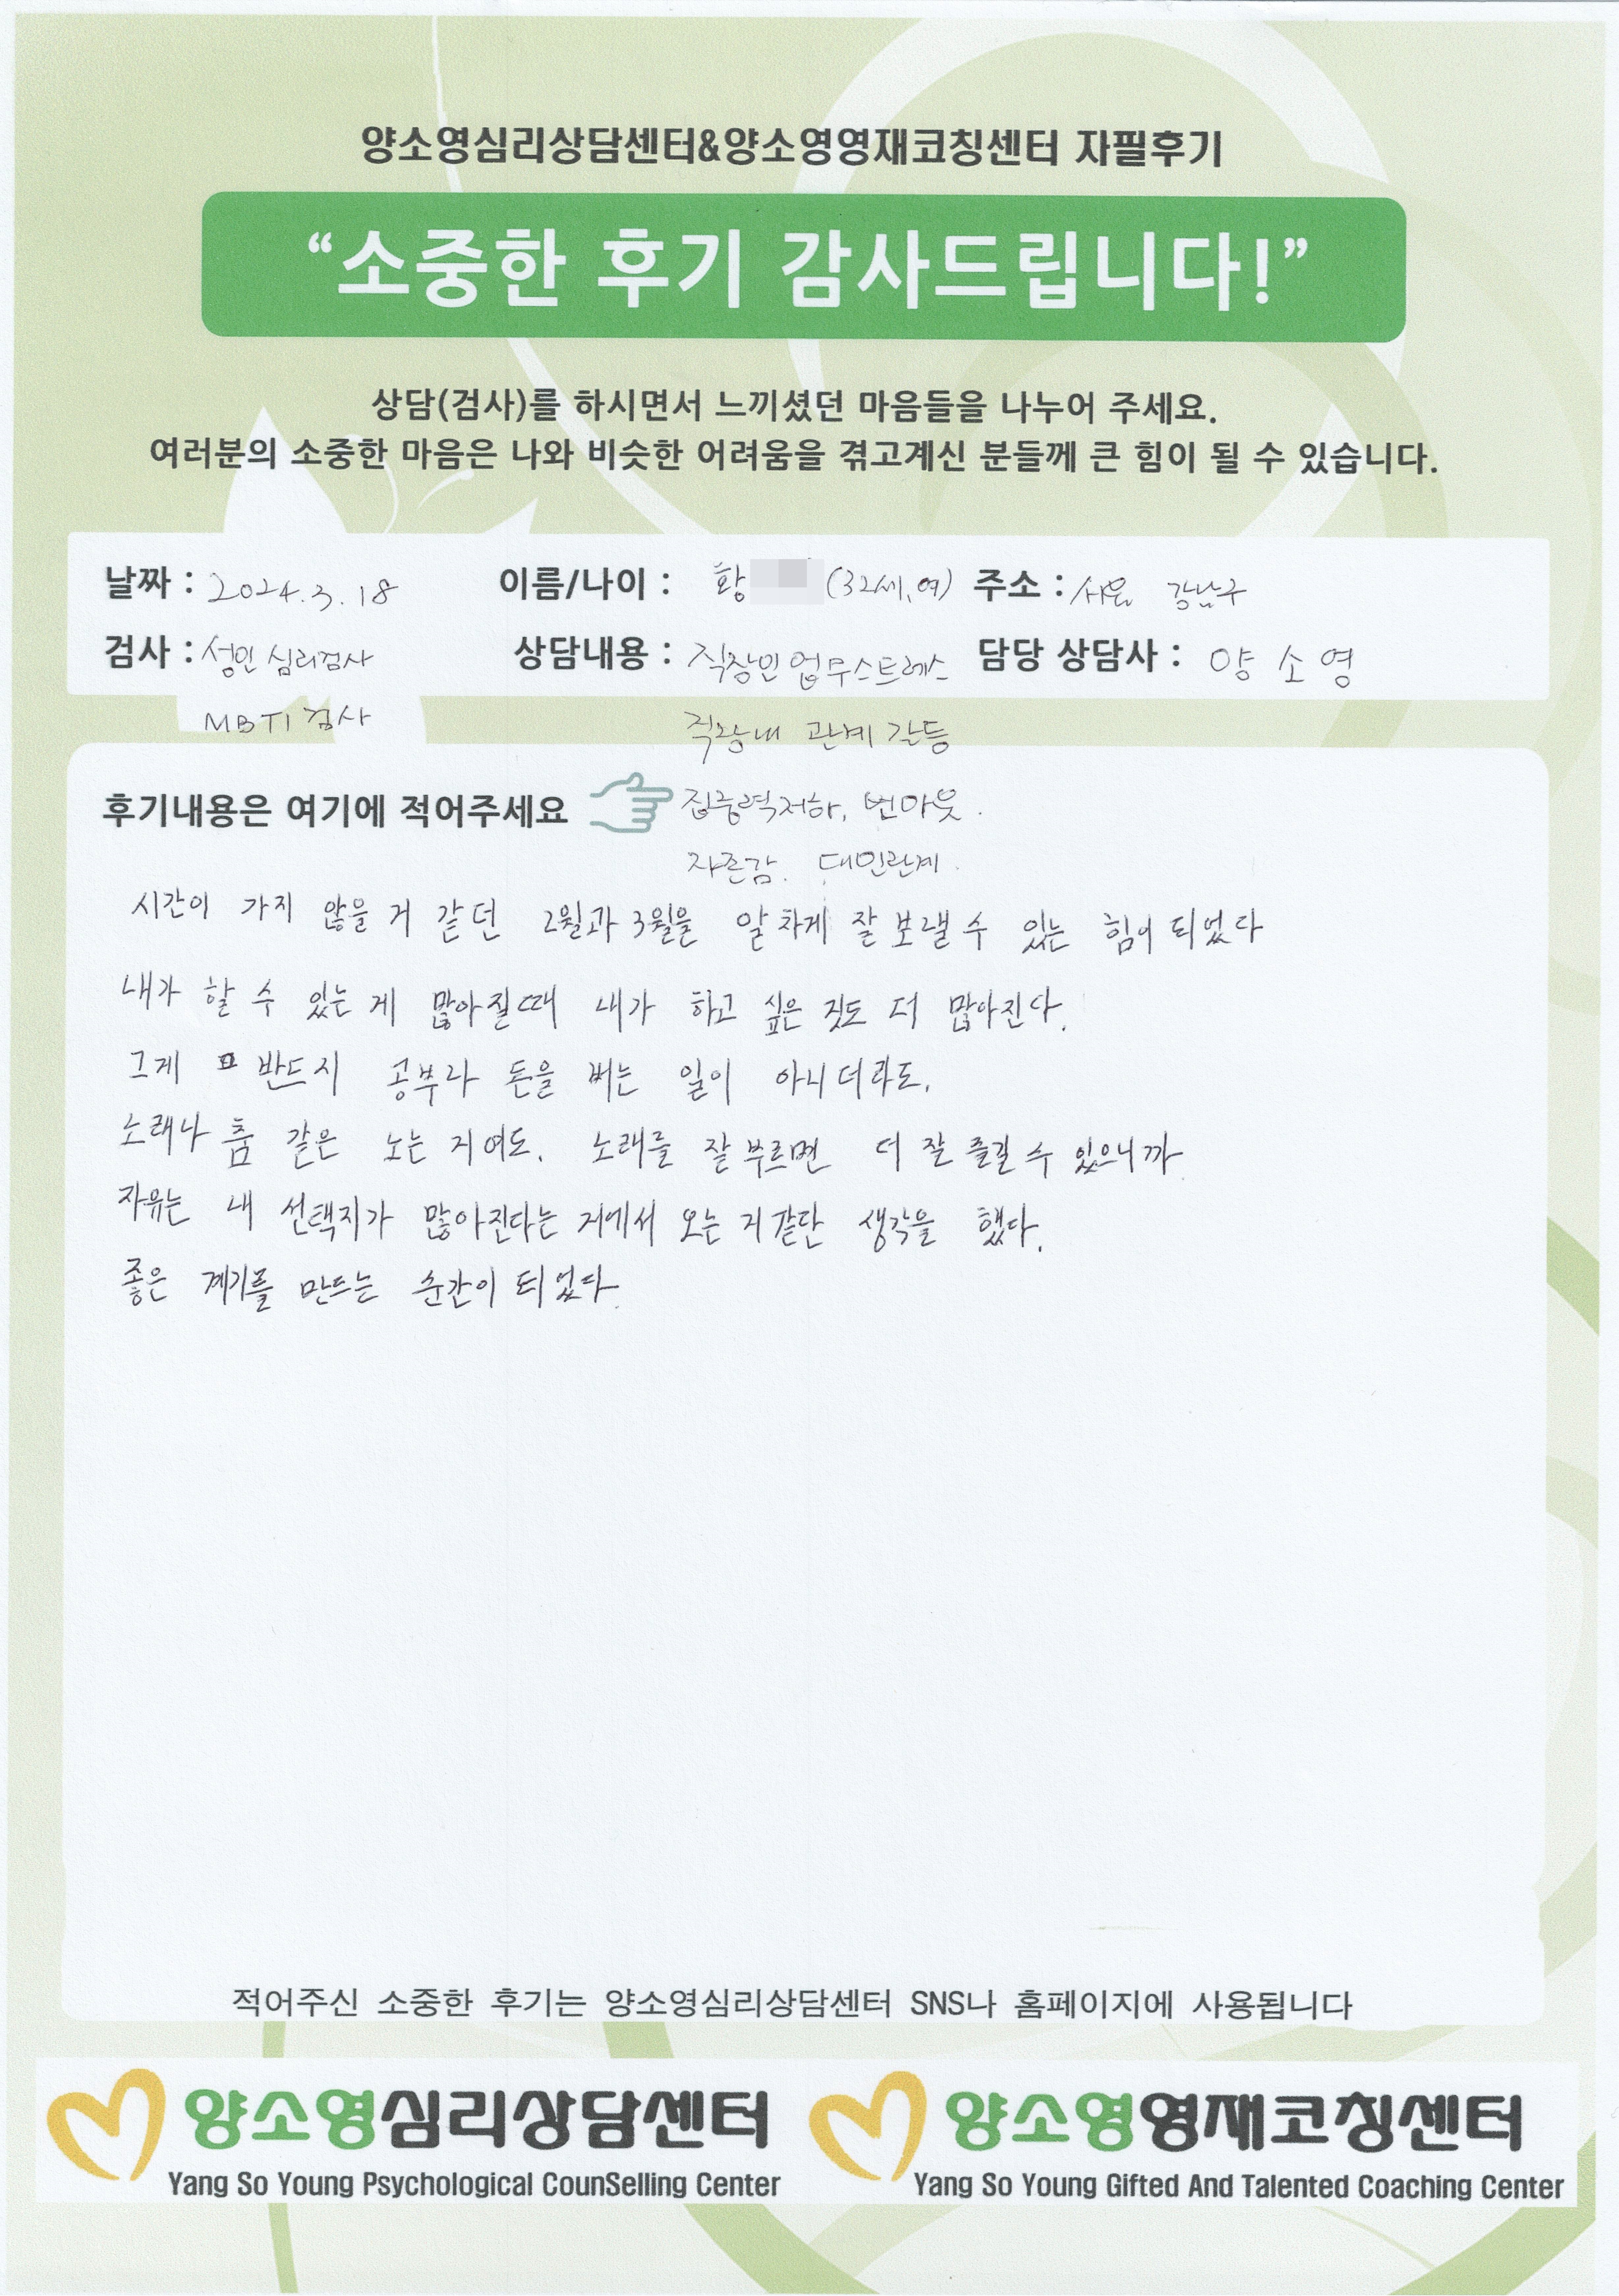 양소영심리상담센터&양소영영재코칭센터 자필후기
“소중한 후기 감사드립니다!”
상담(검사)를 하시면서 느끼셨던 마음들을 나누어 주세요.
여러분의 소중한 마음은 나와 비슷한 어려움을 겪고계신 분들께 큰 힘이 될 수 있습니다.
날짜 : 2024.3.18 이름/나이 : 황 (32세,여) 주소 : 서울 강남구
검사 : 성인 심리검사 상담내용 : 직장인 업무스트레스 담당 상담사 : 양 소 영
MBTI 검사 직장내 관계 갈등
후기내용은 여기에 적어주세요 집중력저하, 번아웃.
자존감. 대인관계.
시간이 가지 않을 거 같던 2월과 3월을 알차게 잘 보낼 수 있는 힘이 되었다
내가 할 수 있는 게 많아질때 내가 하고 싶은 것도 더 많아진다.
그게 반드시 공부나 돈을 버는 일이 아니더라도.
노래나 춤 같은 노는 거여도. 노래를 잘 부르면 더 잘 즐길 수 있으니까
자유는 내 선택지가 많아진다는 거에서 오는 거 같단 생각을 했다.
좋은 계기를 만드는 순간이 되었다.
적어주신 소중한 후기는 양소영심리상담센터 SNS나 홈페이지에 사용됩니다
양소영심리상담센터 양소영영재코칭센터
Yang So Young Psychological CounSelling Center Yang So Young Gifted And Talented Coaching Center